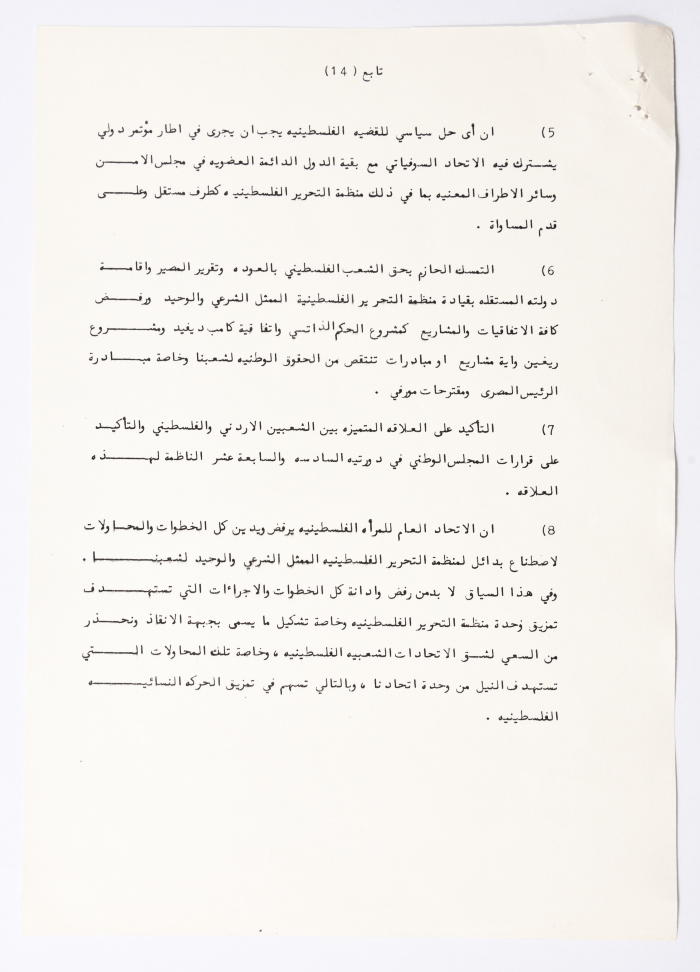 تابع (14)
5) ان أى حل سياسي للقضيه الفلسطينيه يجب ان يجرى في اطار مؤتمر دولي
يشترك فيه الاتحاد السوفياتي مع بقية الدول الدائمة العضويه في مجلس الامن
وسائر الاطراف المعنيه بما في ذلك منظمة التحرير الفلسطينيه كطرف مستقل وعلى
قدم المساواة .
6) التمسك الحازم بحق الشعب الفلسطيني بالعوده وتقرير المصير واقامة
دولته المستقله بقيادة منظمة التحرير الفلسطينية الممثل الشرعي والوحيد ورفض
كافة الاتفاقيات والمشاريع كمشروع الحكم الذاتسي واتفاقية كامب ديفيد ومشروع
ريغين واية مشاريع او مبادرات تنتقص من الحقوق الوطنيه لشعبنا وخاصة مبادرة
الرئيس المصرى ومقترحات مورفي .
7) التأكيد على العلاقه المتميزه بين الشعبين الاردني والفلسطيني والتأكيد
على قرارات المجلس الوطني في دورتيه السادسه والسابعة عشر الناظمة لهذه
العلاقه .
8) ان الاتحاد العام للمرأه الفلسطينيه يرفض ويدين كل الخطوات والمحاولات
لاصطناع بدائل لمنظمة التحرير الفلسطينيه الممثل الشرعي والوحيد لشعبنا .
وفي هذا السياق لا بد من رفض وادانة كل الخطوات والاجراءات التي تستهدف
تمزيق وحدة منظمة التحرير الفلسطينيه وخاصة تشكيل ما يسمى بجبهة الانقاذ ونحذر
من السعي لشق الاتحادات الشعبيه الفلسطينيه ، وخاصة تلك المحاولات التي
تستهدف النيل من وحدة اتحادنا ، وبالتالي تسهم في تمزيق الحركه النسائيه
الفلسطينيه .